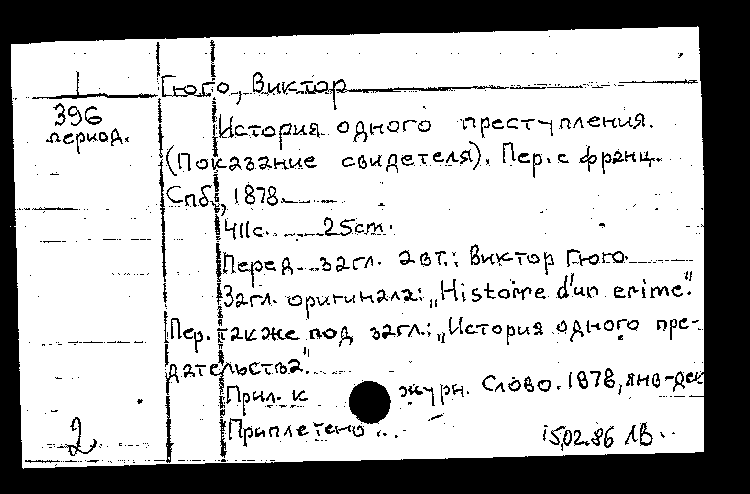 Гюго, Виктор
396
период.
История одного преступления.
(Показание свидетеля). Пер. с франц.
Спб., 1878.
411с. 25cm.
Перед загл. авт.: Виктор Гюго.
Загл. оригинала: „Histoire d'un crime".
Пер. также под загл.: „История одного пре-
дательства".
Прил. к журн. Слово. 1878, янв-дек
Приплетено...
2
15.02.86 ЛВ.